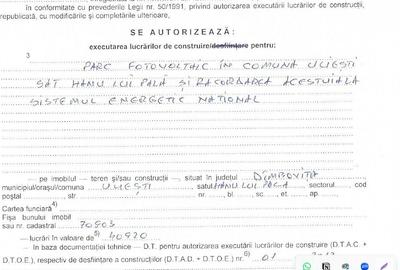 în conformitate cu prevederile Legii nr. 50/1991, privind autorizarea executării lucrărilor de construcții,
republicată, cu modificările și completările ulterioare,
SE AUTORIZEAZĂ:
executarea lucrărilor de construire/desființare pentru:
3
PARC FOTOVOLTAIC ÎN COMUNA ULIEȘTI
SAT HANU LUI PALĂ ȘI RACORDAREA ACESTUIA LA
SISTEMUL ENERGETIC NAȚIONAL
– pe imobilul – teren și/sau construcții –, situat în județul DÎMBOVIȚA
municipiul/orașul/comuna ULIEȘTI satul HANU LUI PALA sectorul cod
poștal , str. nr. , bl. , sc. , et. , ap.
Cartea funciară 4)
Fișa bunului imobil
sau nr. cadastral 70903
– lucrări în valoare de 5) 40920
– În baza documentației tehnice – D.T. pentru autorizarea executării lucrărilor de construire (D.T.A.C. +
D.T.O.E.), respectiv de desființare a construcțiilor (D.T.A.D. + D.T.O.E.) nr. 6) 01